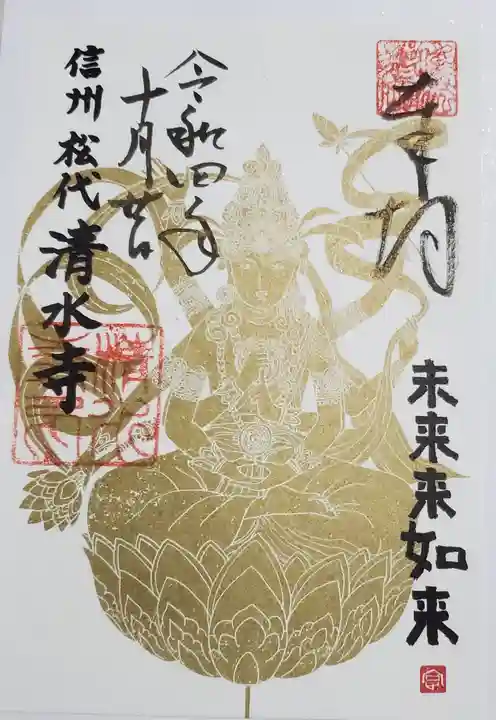 奉拝
未来来如来
令和四年
十月廿日
信州 松代 清水寺